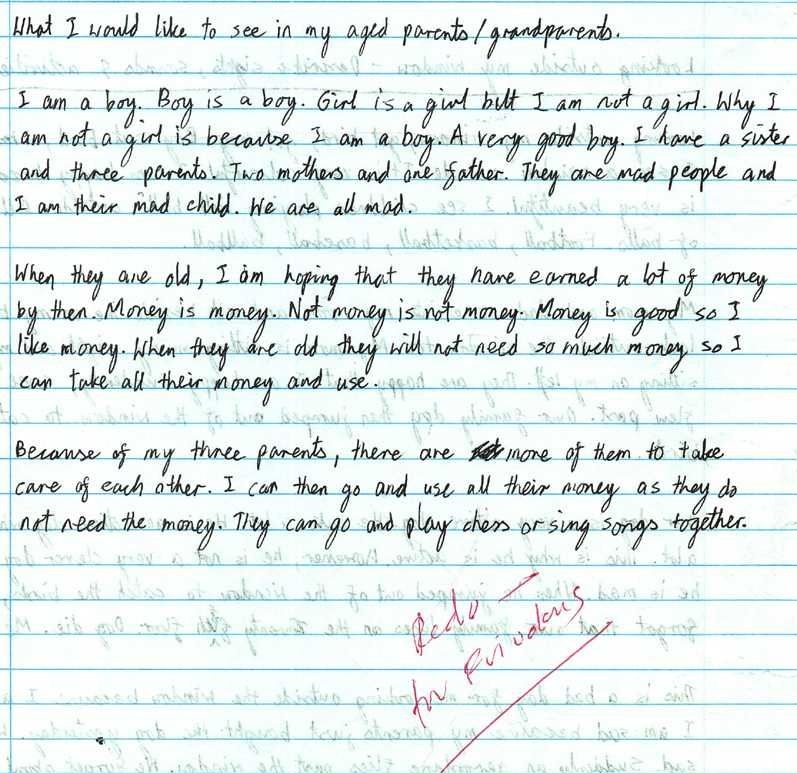 What I would like to see in my aged parents/grandparents.
I am a boy. Boy is a boy. Girl is a girl but I am not a girl. Why I
am not a girl is because I am a boy. A very good boy. I have a sister
and three parents. Two mothers and one father. They are mad people and
I am their mad child. We are all mad.
When they are old, I am hoping that they have earned a lot of money
by then. Money is money. Not money is not money. Money is good so I
like money. When they are old they will not need so much money so I
can take all their money and use.
Because of my three parents, there are more of them to take
care of each other. I can then go and use all their money as they do
not need the money. They can go and play chess or sing songs together.
Redo
for